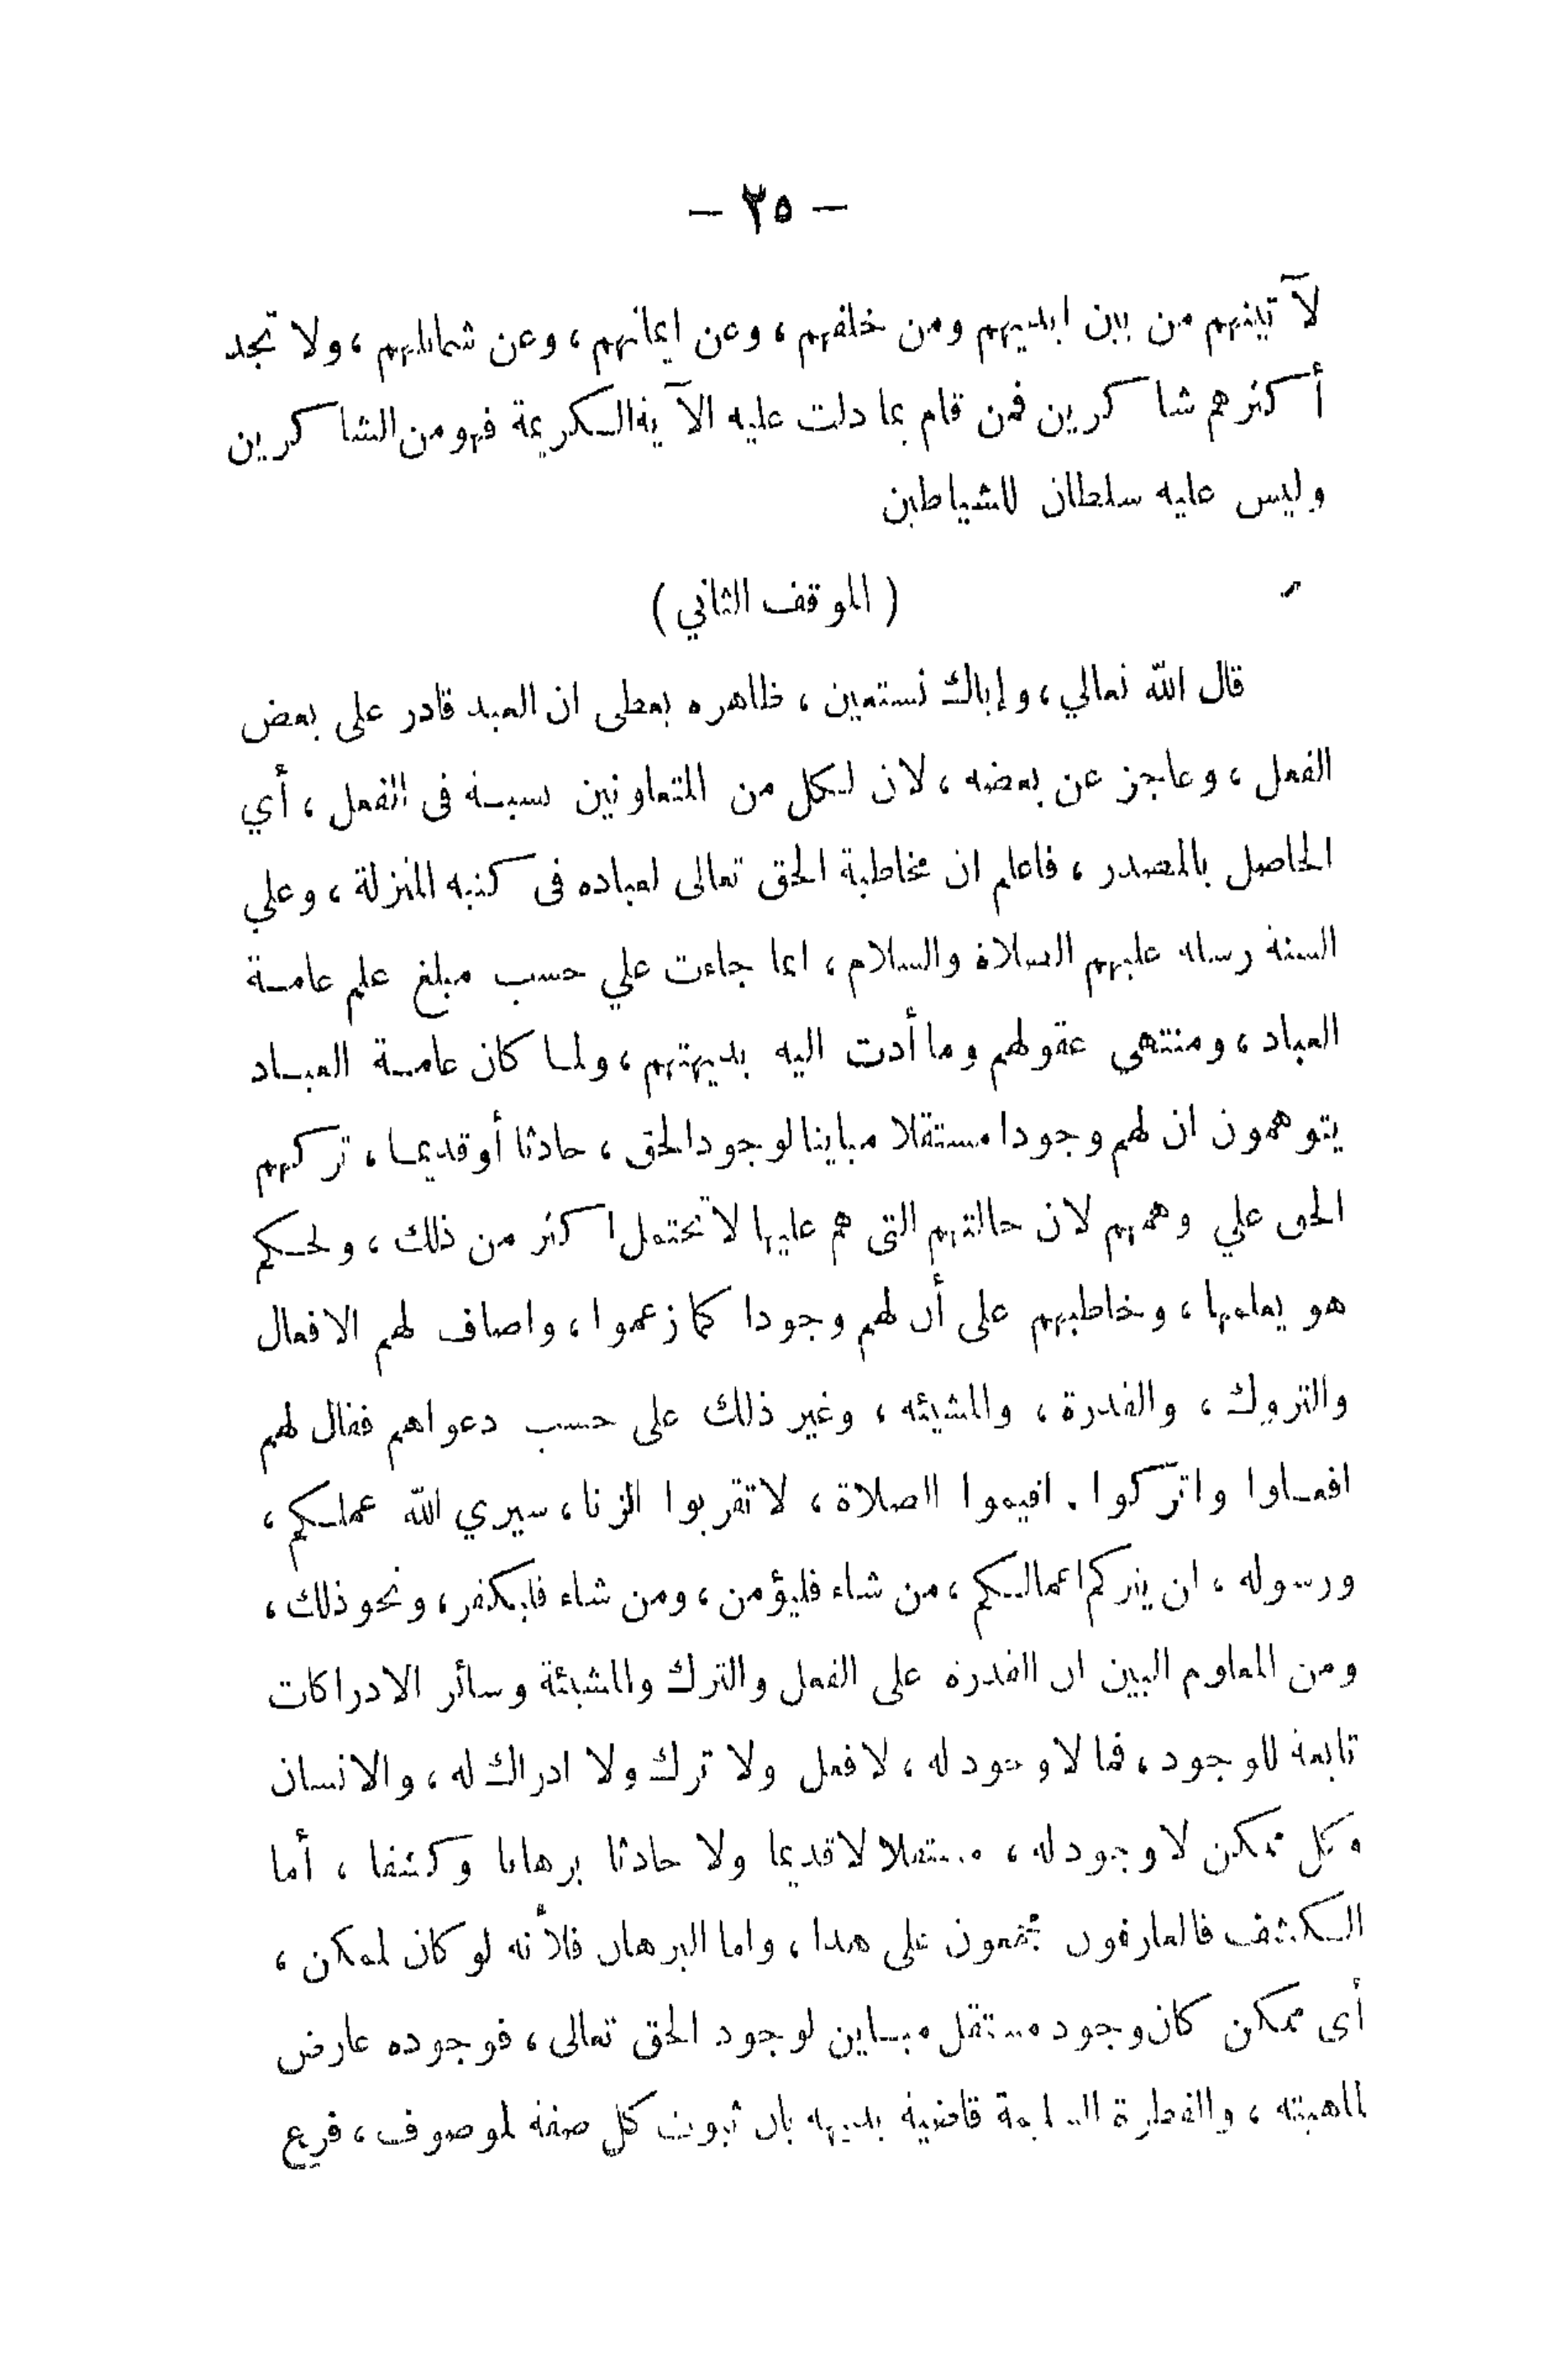 — ٢٥ —
لآتينهم من بين ايديهم ومن خلفهم ، وعن ايمانهم ، وعن شمائلهم ، ولا تجد
أكثرهم شاكرين فمن قام بما دلت عليه الآية الكريمة فهو من الشاكرين
وليس عليه سلطان للشياطين
( الموقف الثاني )
قال الله تعالي ، وإياك نستعين ، ظاهره يعطى ان العبد قادر على بعض
الفعل ، وعاجز عن بعضه ، لان لكل من المتعاونين نسبة فى الفعل ، أي
الحاصل بالمصدر ، فاعلم ان مخاطبة الحق تعالى لعباده فى كتبه المنزلة ، وعلي
السنة رسله عليهم الصلاة والسلام ، انما جاءت علي حسب مبلغ علم عامة
العباد ، ومنتهى عقولهم وما أدت اليه بديهتهم ، ولما كان عامة العباد
يتوهمون ان لهم وجودا مستقلا مباينا لوجود الحق ، حادثا أو قديما ، تركهم
الحق علي وهمهم لان حالتهم التى هم عليها لا تحتمل اكثر من ذلك ، ولحكم
هو يعلمها ، وخاطبهم على أن لهم وجودا كما زعموا ، واضاف لهم الافعال
والتروك ، والقدرة ، والمشيئه ، وغير ذلك على حسب دعواهم فقال لهم
افعلوا واتركوا . اقيموا الصلاة ، لا تقربوا الزنا ، سيري الله عملكم ،
ورسوله ، ان يتركم اعمالكم ، من شاء فليؤمن ، ومن شاء فليكفر ، ونحو ذلك ،
ومن المعلوم البين ان القدرة على الفعل والترك والمشيئة وسائر الادراكات
تابعة للوجود ، فما لا وجود له ، لا فعل ولا ترك ولا ادراك له ، والانسان
وكل ممكن لا وجود له ، مستقلا لا قديما ولا حادثا برهانا وكشفا ، أما
الكشف فالعارفون مجمعون على هذا ، واما البرهان فلأنه لو كان لممكن ،
أى ممكن كان وجود مستقل مباين لوجود الحق تعالى ، فوجوده عارض
لماهيته ، والفطرة السليمة قاضية بديهه بان ثبوت كل صفة لموصوف ، فرع